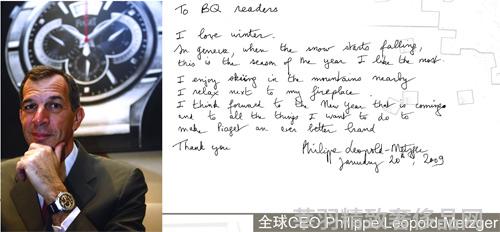 PIAGET
To BQ readers
I love winter.
In geneva, when the snow starts falling,
this is the season of the year I like the most
I enjoy skiing in the mountains nearby
I relax next to my fireplace.
I think forward to the New Year that is coming
and to all the things I want to do to
make Piaget an ever better brand
Thank you
Philippe Leopold-Metzger
January 20th, 2009
全球CEO Philippe Léopold-Metzger